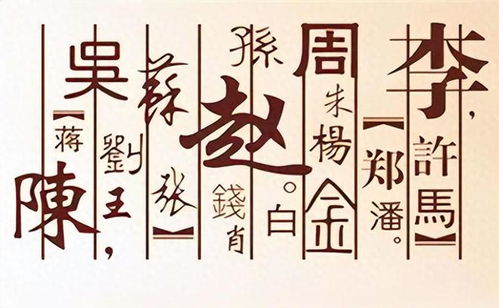 李,許馬】
【郑潘。
周朱楊金
孫赵。白
錢肖
蘇张】
劉王,
吳【蒋陳